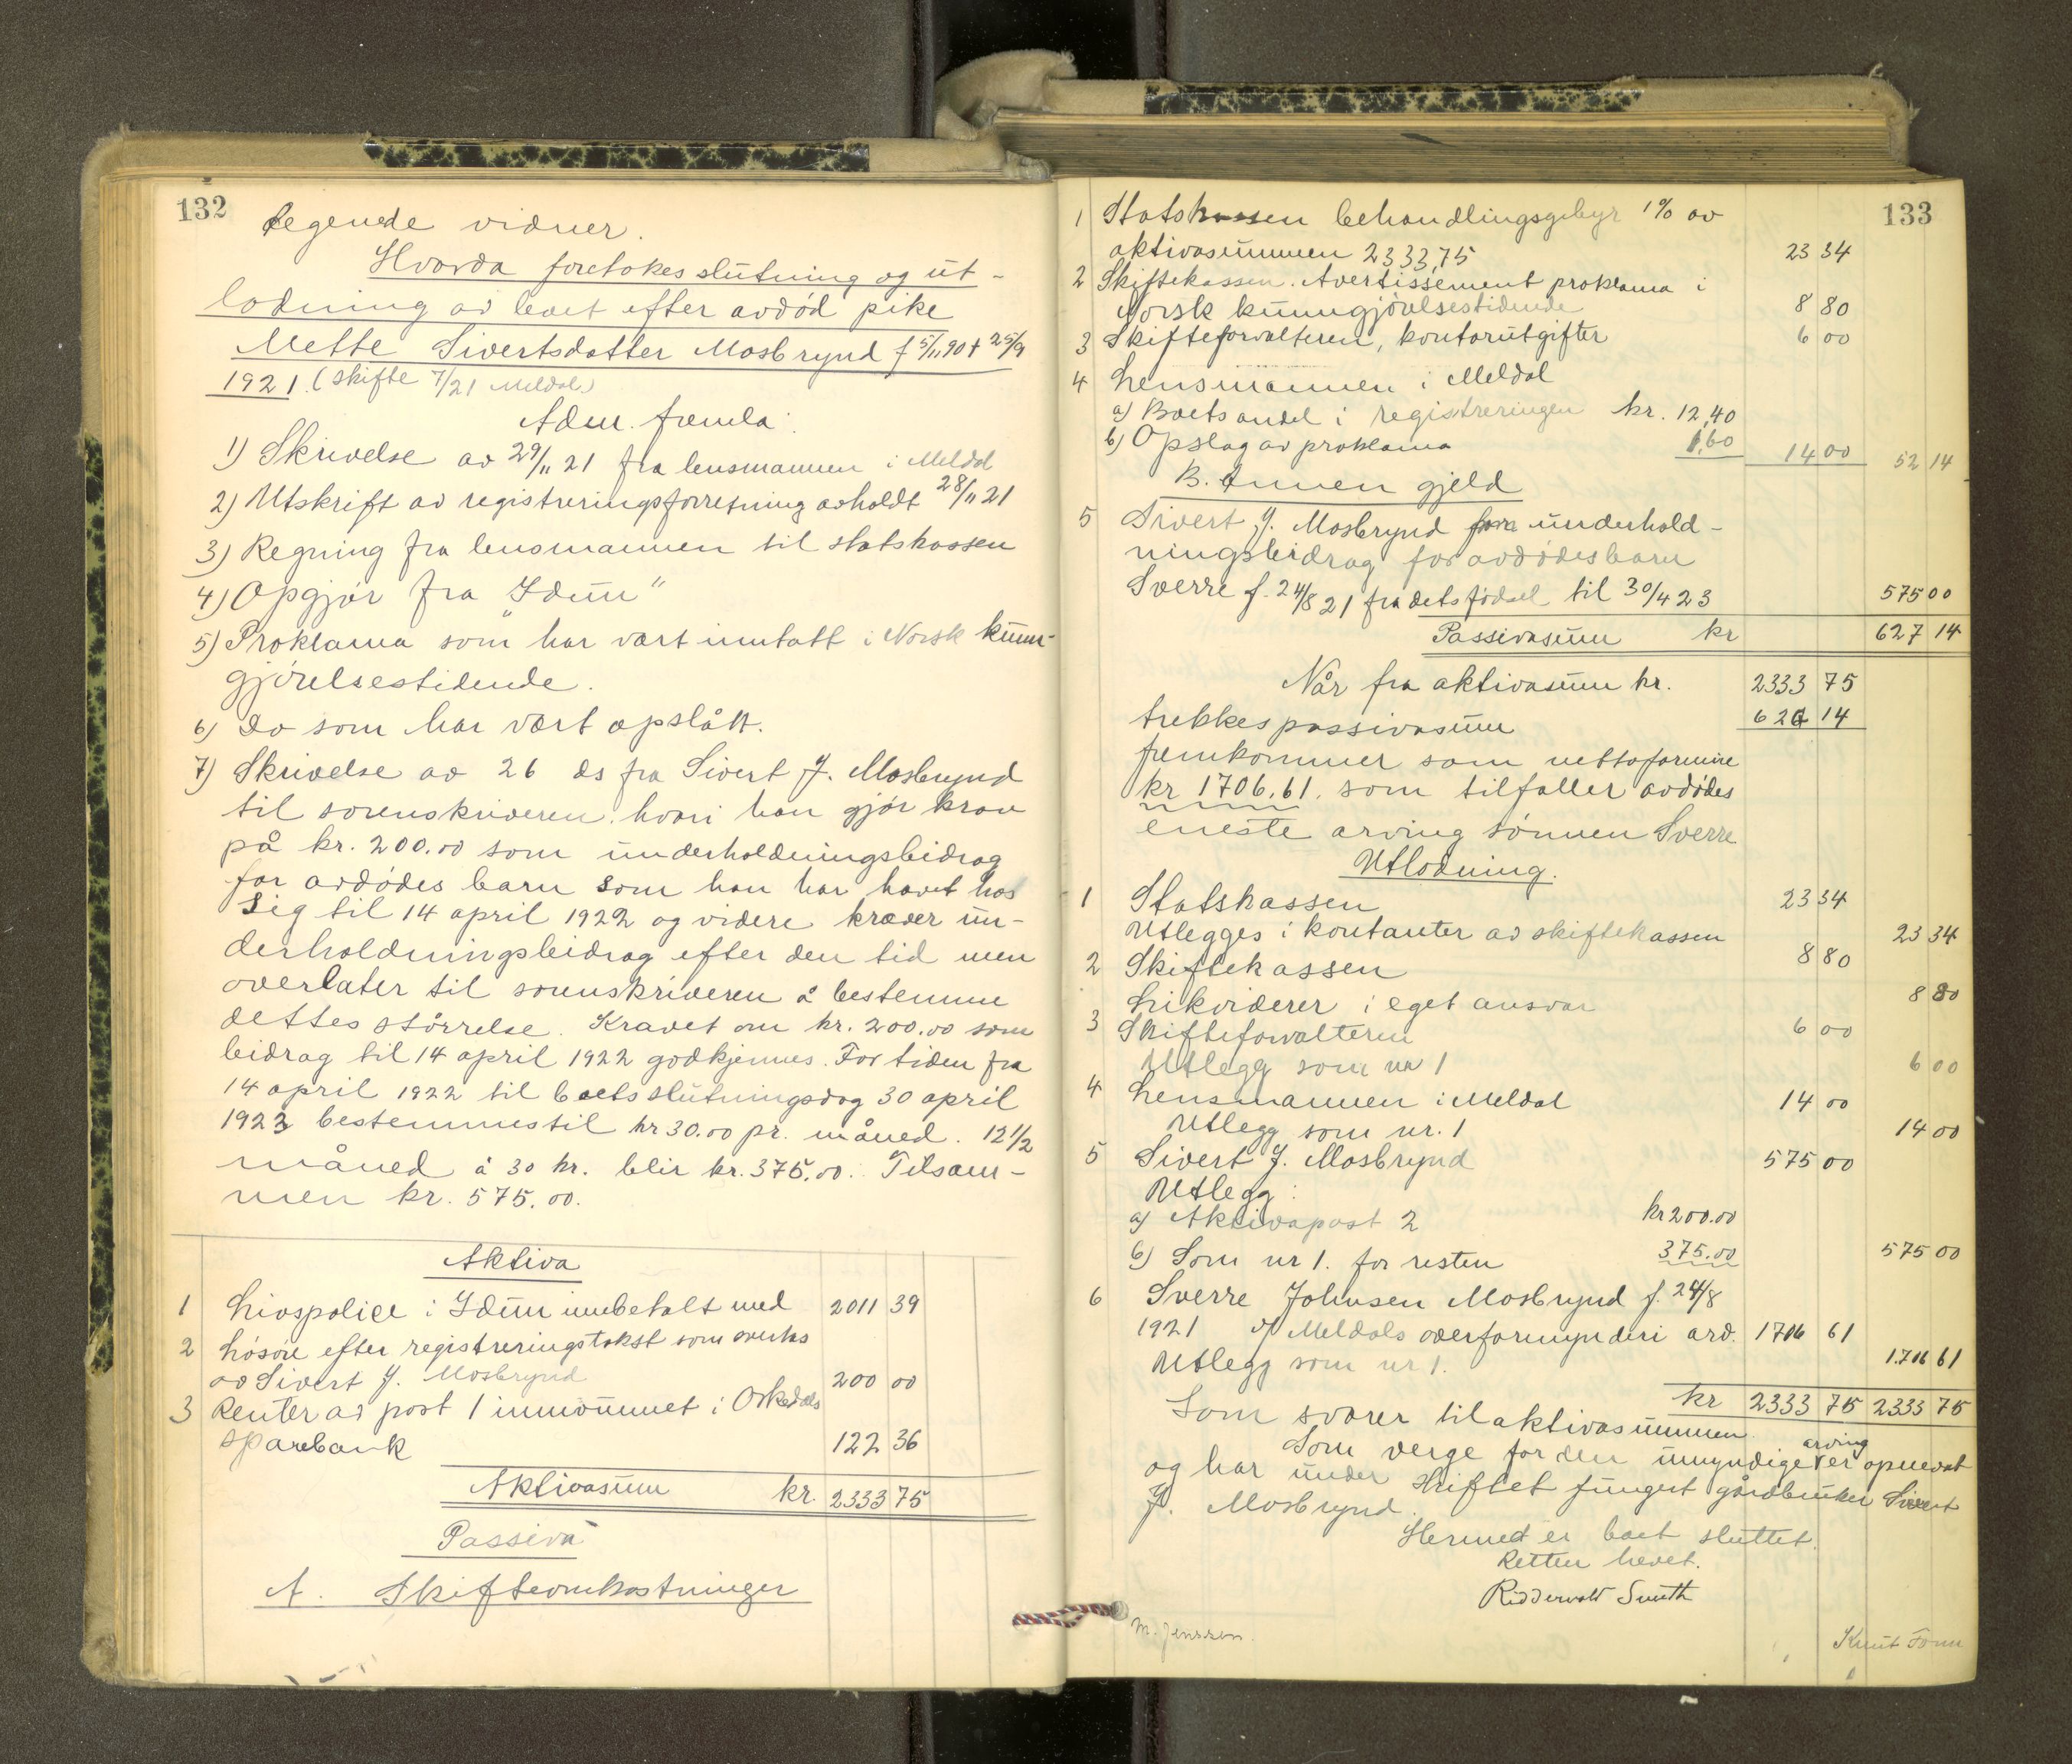 132
tegende vidner.
Hvorda foretokes slutning og ut-
lodning av boet efter avdød pike
Mette Sivertsdatter Mosbrynd f 5/11 90 + 25/9
1921. (Skifte 7/21 Meldal)
Adm. fremla:
1) Skrivelse av 29/11 21 fra lensmannen i Meldal
2) Utskrift av registreringsforretning avholdt 28/11 21
3) Regning fra lensmannen til statskassen
4) Opgjør fra "Idun"
5) Proklama som har vært inntatt i Norsk kunn-
gjørelsestidende.
6) Do som har vært opslått.
7) Skrivelse av 26 ds fra Sivert J. Mosbrynd
til sorenskriveren hvori han gjør krav
på kr. 200.00 som underholdningsbidrag
for avdødes barn som han har havet hos
sig til 14 april 1922 og videre kræver un-
derholdningsbidrag efter den tid men
overlater til sorenskriveren å bestemme
dettes størrelse. Kravet om kr. 200.00 som
bidrag til 14 april 1922 godkjennes. For tiden fra
14 april 1922 til boets slutningsdag 30 april
1923 bestemmes til kr 30.00 pr. måned. 12 1/2
måned å 30 kr. blir kr. 375.00. Tilsam-
men kr. 575.00.
Aktiva
1 Livspolice i Idun innbetalt med 2011 39
2 Løsøre efter registreringstakst som overtas
av Sivert J. Mosbrynd 200 00
3 Renter av post 1 innvunnet i Orkedals
sparebank 122 36
Aktivasum kr. 2333 75
Passiva
A. Skifteomkostninger
133
1 Statskassen behandlingsgebyr 1% av
aktivasummen 2333,75 23 34
2 Skiftekassen. Avertissement proklama i
Norsk kunngjørelsestidende 8 80
3 Skifteforvalteren, kontorutgifter 6 00
4 Lensmannen i Meldal
a) Boets andel i registreringen kr. 12,40
b) Opslag av proklama 1,60 14 00 52 14
B. Annen gjeld
5 Sivert J. Mosbrynd underhold-
ningsbidrag for avdødes barn
Sverre f. 24/8 21 fra dets fødsel til 30/4 23 575 00
Passivasum kr 627 14
Når fra aktivasum kr. 2333 75
trekkes passivasum 627 14
fremkommer som nettoformue
kr 1706,61. som tilfaller avdødes
eneste arving sønnen Sverre
Utlodning.
1 Statskassen 23 34
Utlegges i kontanter av skiftekassen 23 34
2 Skiftekassen 8 80
Likviderer i eget ansvar 8 80
3 Skifteforvalteren 6 00
Utlegg som nr 1 6 00
4 Lensmannen i Meldal 14 00
Utlegg som nr. 1 14 00
5 Sivert J. Mosbrynd 575 00
Utlegg:
a) Aktivapost 2 kr 200.00
b) Som nr 1. for resten 375.00 575 00
6 Sverre Johnsen Mosbrynd f. 24/8
1921 v/ Meldals overformynderi avd. 1706 61
Utlegg som nr 1. 1706 61
kr 2333 75 2333 75
Som svarer til aktivasummen.
Som verge for den umyndige arving er opnevnt
og har under skiftet fungert gårdbruker Sivert
J. Mosbrynd.
Hermed er boet sluttet.
Retten hevet.
Riddervold Smith
M. Jenssen.
Knut Tonn